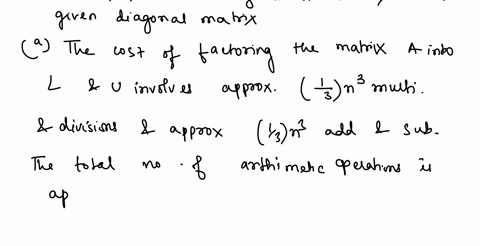 given diagonal matrix
(a) The cost of factoring the matrix A into
L & U involves approx. (1/3)n³ multi.
& divisions & approx (1/3)n³ add & sub.
The total no. of arithmetic operations is
ap